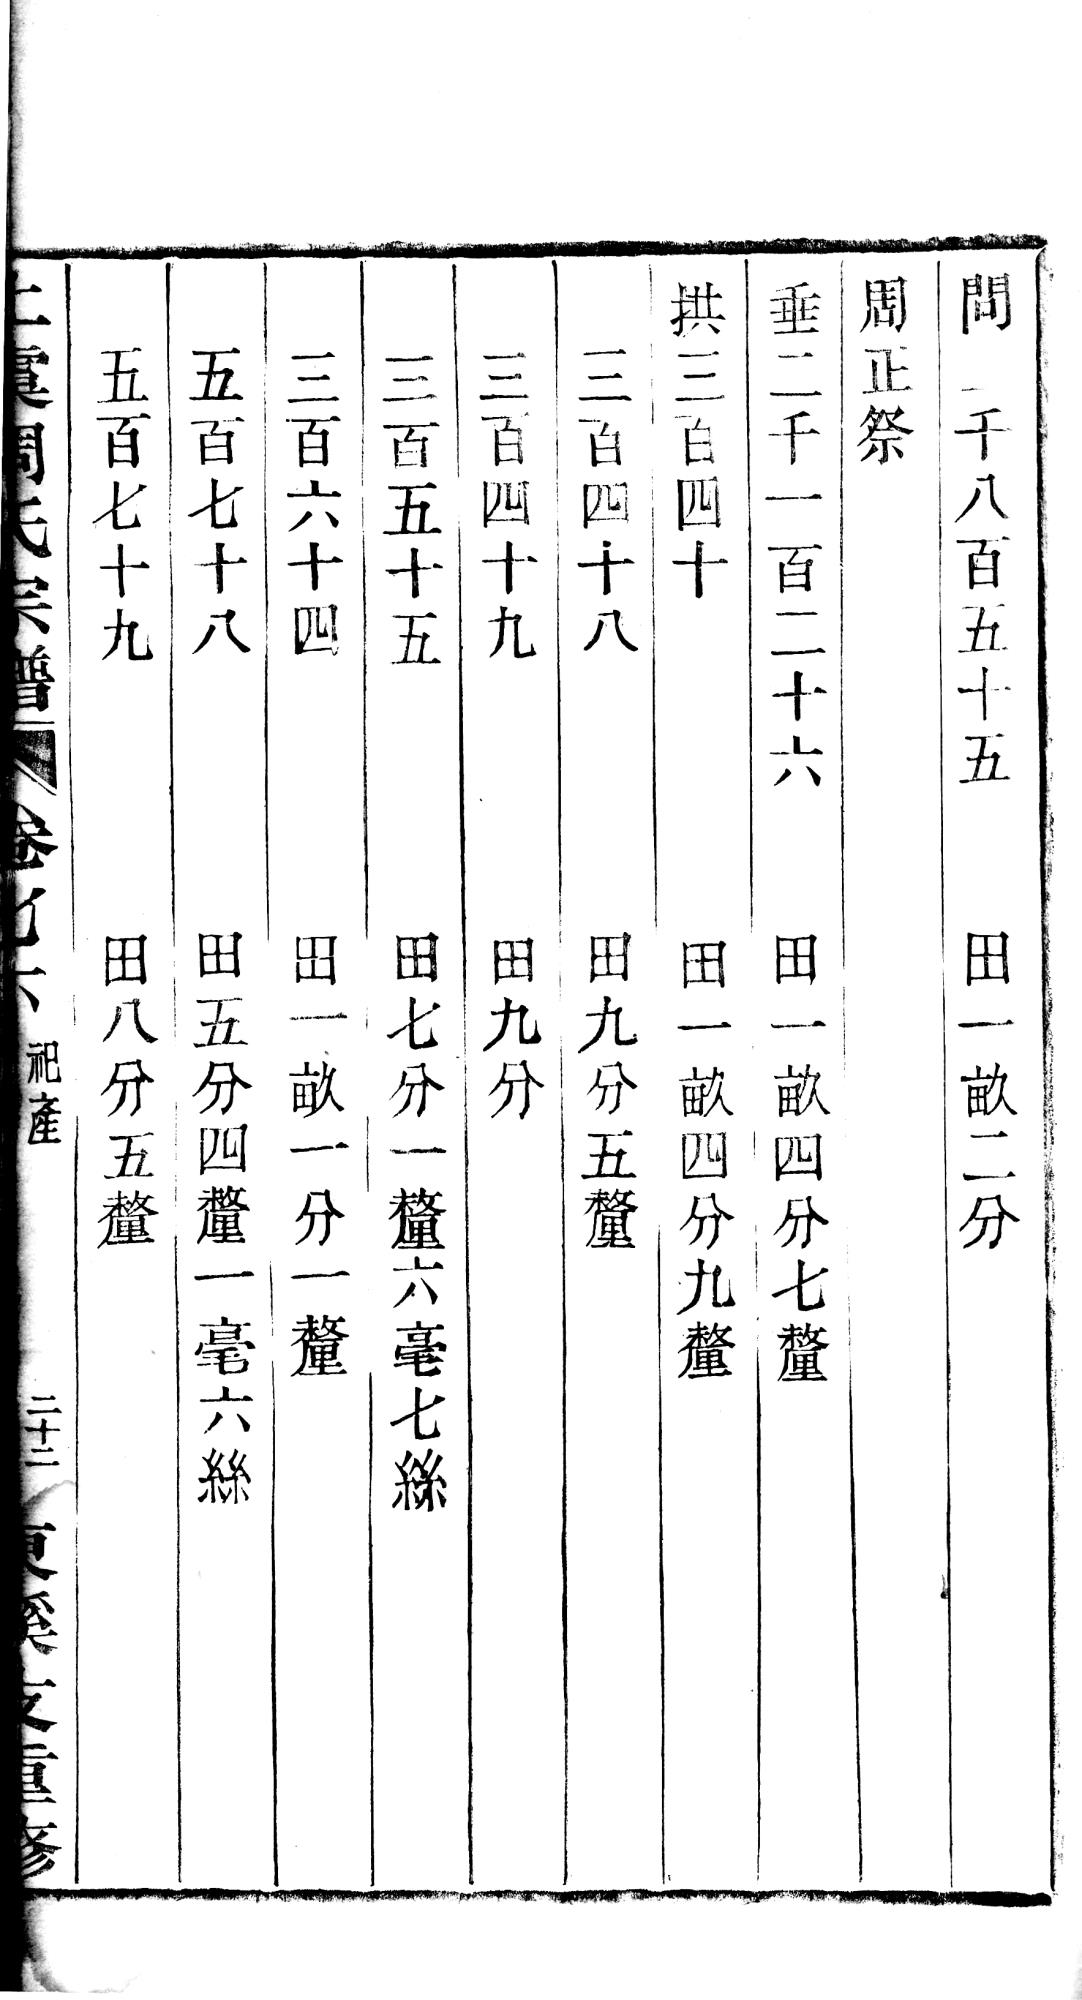 問一千八百五十五 田一畝二分
周正祭
垂二千一百二十六 田一畝四分七釐
拱三百四十 田一畝四分九釐
三百四十八 田九分五釐
三百四十九 田九分
三百五十五 田七分一釐六毫七絲
三百六十四 田一畝一分一釐
五百七十八 田五分四釐一毫六絲
五百七十九 田八分五釐
上虞周氏宗譜 卷之六 祀產 二十二 東溪支重修